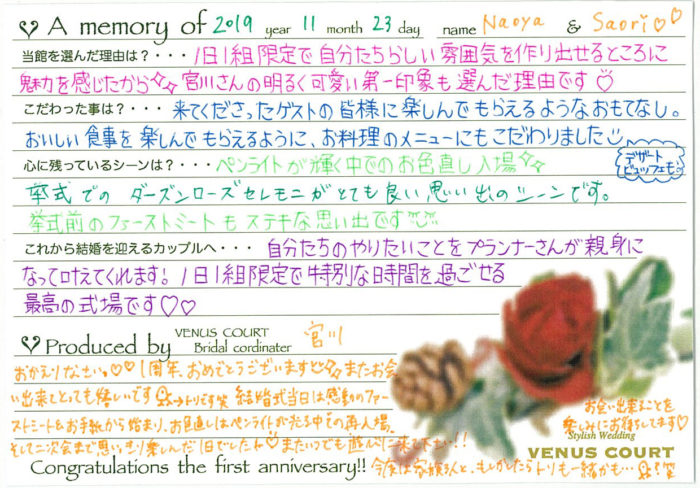 ♡ A memory of 2019 year 11 month 23 day name Naoya & Saori♡♡
当館を選んだ理由は？・・・1日1組限定で自分たちらしい雰囲気を作り出せるところに
魅力を感じたから✧✧ 宮川さんの明るく可愛い第一印象も選んだ理由です♡
こだわった事は？・・・来てくださったゲストの皆様に楽しんでもらえるようなおもてなし。
おいしい食事を楽しんでもらえるように、お料理のメニューにもこだわりました
デザート
ビュッフェも。
心に残っているシーンは？・・・ペンライトが輝く中でのお色直し入場✧✧
挙式での ダーズンローズセレモニーがとても良い思い出のシーンです。
挙式前のファーストミートもステキな思い出です
これから結婚を迎えるカップルへ・・・自分たちのやりたいことをプランナーさんが親身に
なって叶えてくれます！1日1組限定で特別な時間を過ごせる
最高の式場です♡♡
♡ Produced by VENUS COURT Bridal cordinater 宮川
おかえりなさい。♡♡1周年、おめでとうございます またお会
い出来てとっても嬉しいです →トリです笑 結婚式当日は感動のファー
ストミート&お手紙から始まり、お色直しはペンライトが光る中での再入場。
そして二次会まで思いきり楽しんだ1日でしたね♡またいつでも遊びに来て下さい!!
今度は家族3人と、もしかしたらトリも一緒かも… 笑
お会い出来ることを
楽しみにお待ちしてます♡
Stylish Wedding
VENUS COURT
Congratulations the first anniversary!!